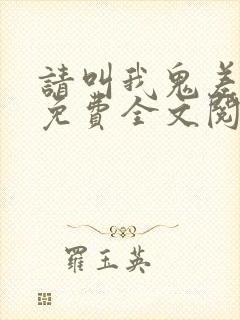 請叫我鬼差
免費全文閱
羅玉英